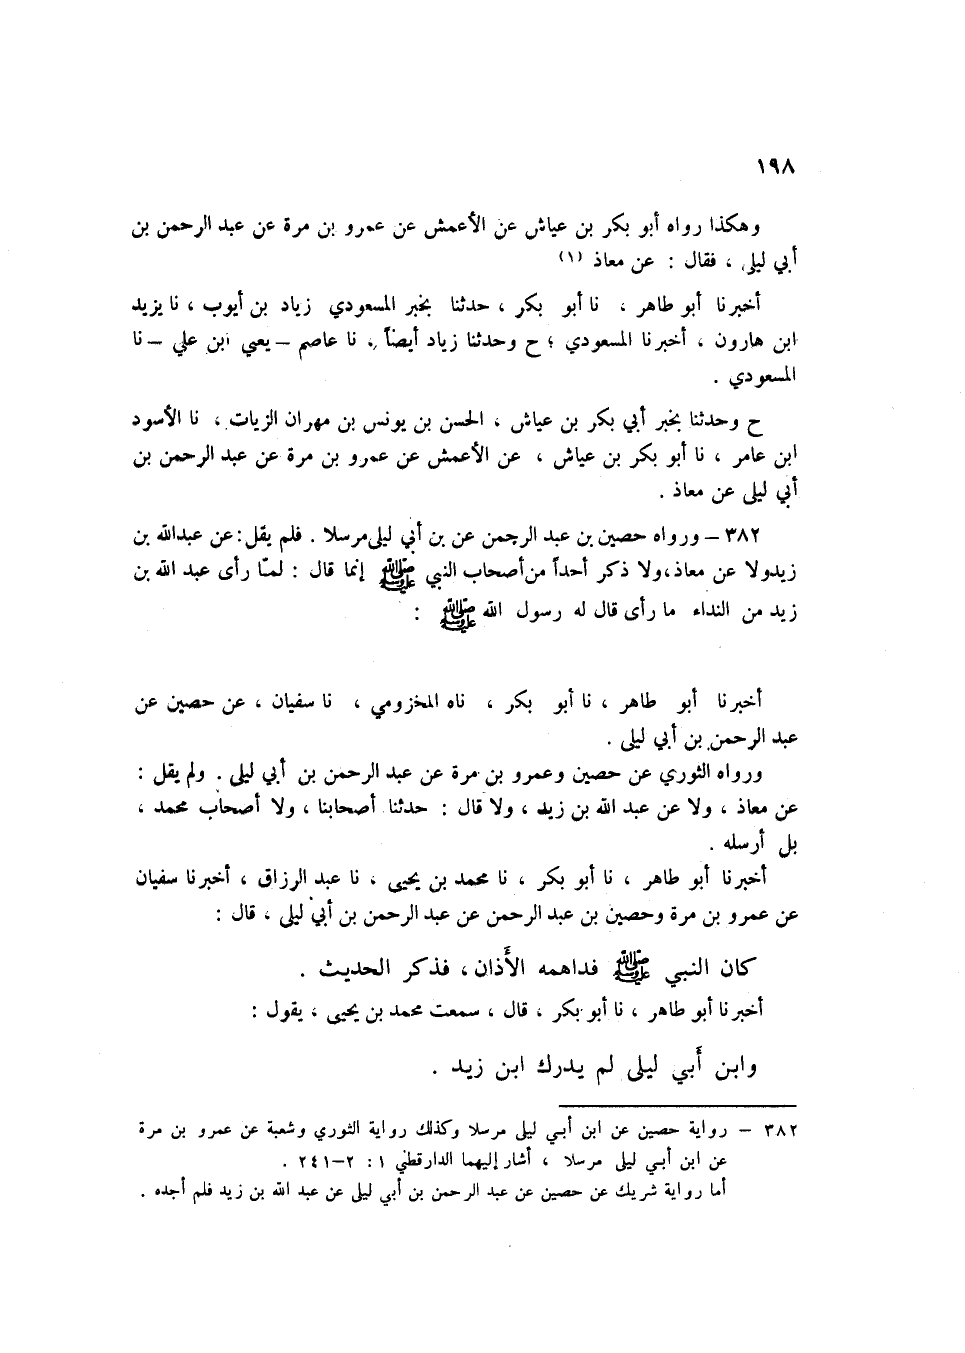 ١٩٨
وهكذا رواه أبو بكر بن عياش عن الأعمش عن عمرو بن مرة عن عبد الرحمن بن
أبي ليلى ، فقال : عن معاذ (١)
أخبرنا أبو طاهر ، نا أبو بكر ، حدثنا بخبر المسعودي زياد بن أيوب ، نا يزيد
ابن هارون ، أخبرنا المسعودي ؛ ح وحدثنا زياد أيضاً ، نا عاصم – يعني ابن علي – نا
المسعودي .
ح وحدثنا بخبر أبي بكر بن عياش ، الحسن بن يونس بن مهران الزيات ، نا الأسود
ابن عامر ، نا أبو بكر بن عياش ، عن الأعمش عن عمرو بن مرة عن عبد الرحمن بن
أبي ليلى عن معاذ .
٣٨٢ – ورواه حصين بن عبد الرحمن عن بن أبي ليلى مرسلا . فلم يقل : عن عبدالله بن
زيد ولا عن معاذ ، ولا ذكر أحداً من أصحاب النبي ﷺ إنما قال : لمـّا رأى عبد الله بن
زيد من النداء ما رأى قال له رسول الله ﷺ :
أخبرنا أبو طاهر ، نا أبو بكر ، ناه المخزومي ، نا سفيان ، عن حصين عن
عبد الرحمن بن أبي ليلى .
ورواه الثوري عن حصين وعمرو بن مرة عن عبد الرحمن بن أبي ليلى . ولم يقل :
عن معاذ ، ولا عن عبد الله بن زيد ، ولا قال : حدثنا أصحابنا ، ولا أصحاب محمد ،
بل أرسله .
أخبرنا أبو طاهر ، نا أبو بكر ، نا محمد بن يحيى ، نا عبد الرزاق ، أخبرنا سفيان
عن عمرو بن مرة وحصين بن عبد الرحمن عن عبد الرحمن بن أبي ليلى ، قال :
كان النبي ﷺ فداهمه الأَذان ، فذكر الحديث .
أخبرنا أبو طاهر ، نا أبو بكر ، قال ، سمعت محمد بن يحيى ، يقول :
وابن أَبي ليلى لم يدرك ابن زيد .
٣٨٢ – رواية حصين عن ابن أبي ليلى مرسلا وكذلك رواية الثوري وشعبة عن عمرو بن مرة
عن ابن أبي ليلى مرسلا ، أشار إليهما الدارقطني ١ : ٢–٢٤١ .
أما رواية شريك عن حصين عن عبد الرحمن بن أبي ليلى عن عبد الله بن زيد فلم أجده .